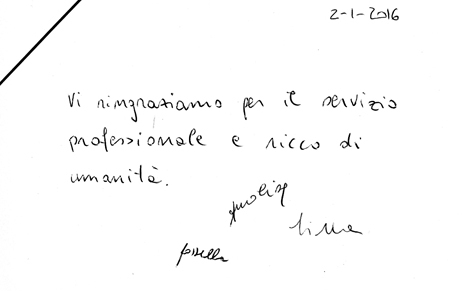 2-1-2016
Vi ringraziamo per il servizio
professionale e ricco di
umanità.